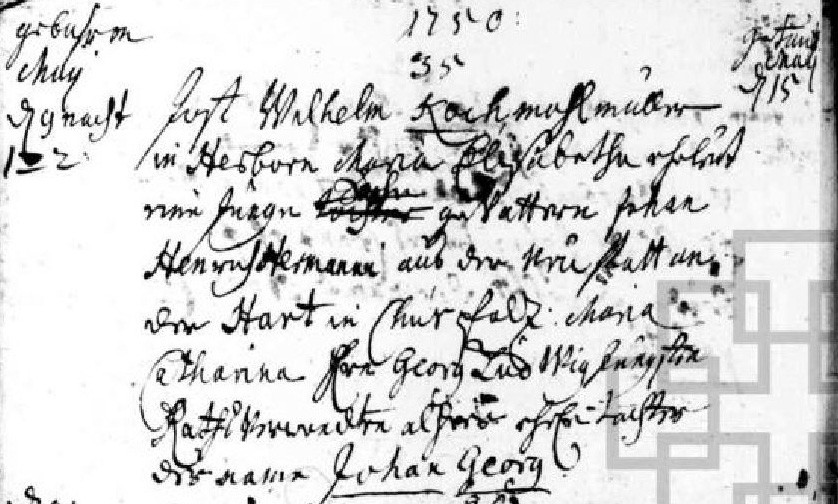 1750:
35
gebohren
May
d 9 nacht
1–2:
getauft
May
d 15
Jost Wilhelm Koch mahlmüller
in Hesborn Maria Elisabetha eheleut
eine junge Sohn gevattern Johan
Henrich Hermanni aus der Neustatt an
der Hart in Chur Pfalz: Maria
Catharina Hrn Georg Ludwig
Rathsverwandten alhier ehel. tochter
der name Johan Georg